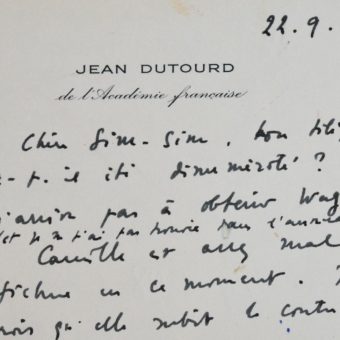 22.9.
JEAN DUTOURD
de l'Académie française
Cher Sim-Sim, ton télé
a-t-il été démuméroté?
n'arrive pas à obtenir Wag
(et je n'ai pas trouvé dans l'annuai
Camille est assez mal
fichue en ce moment.
crois qu'elle subit le contre